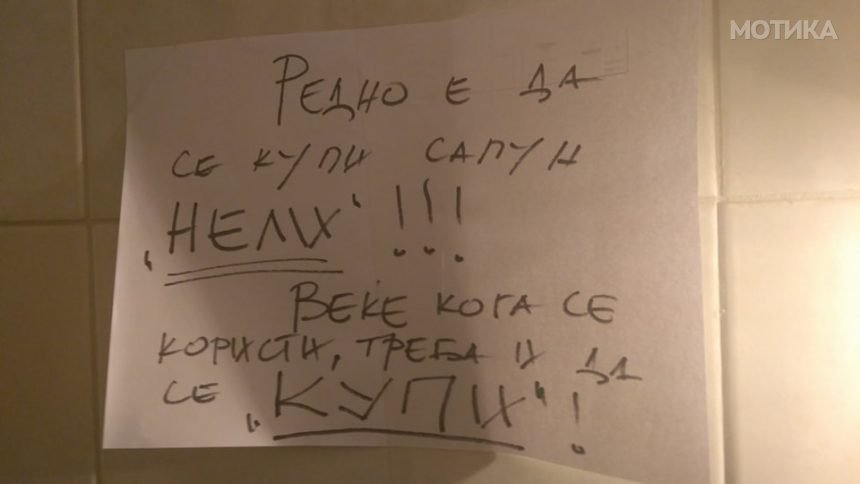 МОТИКА
РЕДНО Е ДА
СЕ КУПИ САПУН
„НЕЛИ“ !!!
ВЕЌЕ КОГА СЕ
КОРИСТИ, ТРЕБА И ДА
СЕ „КУПИ“ !